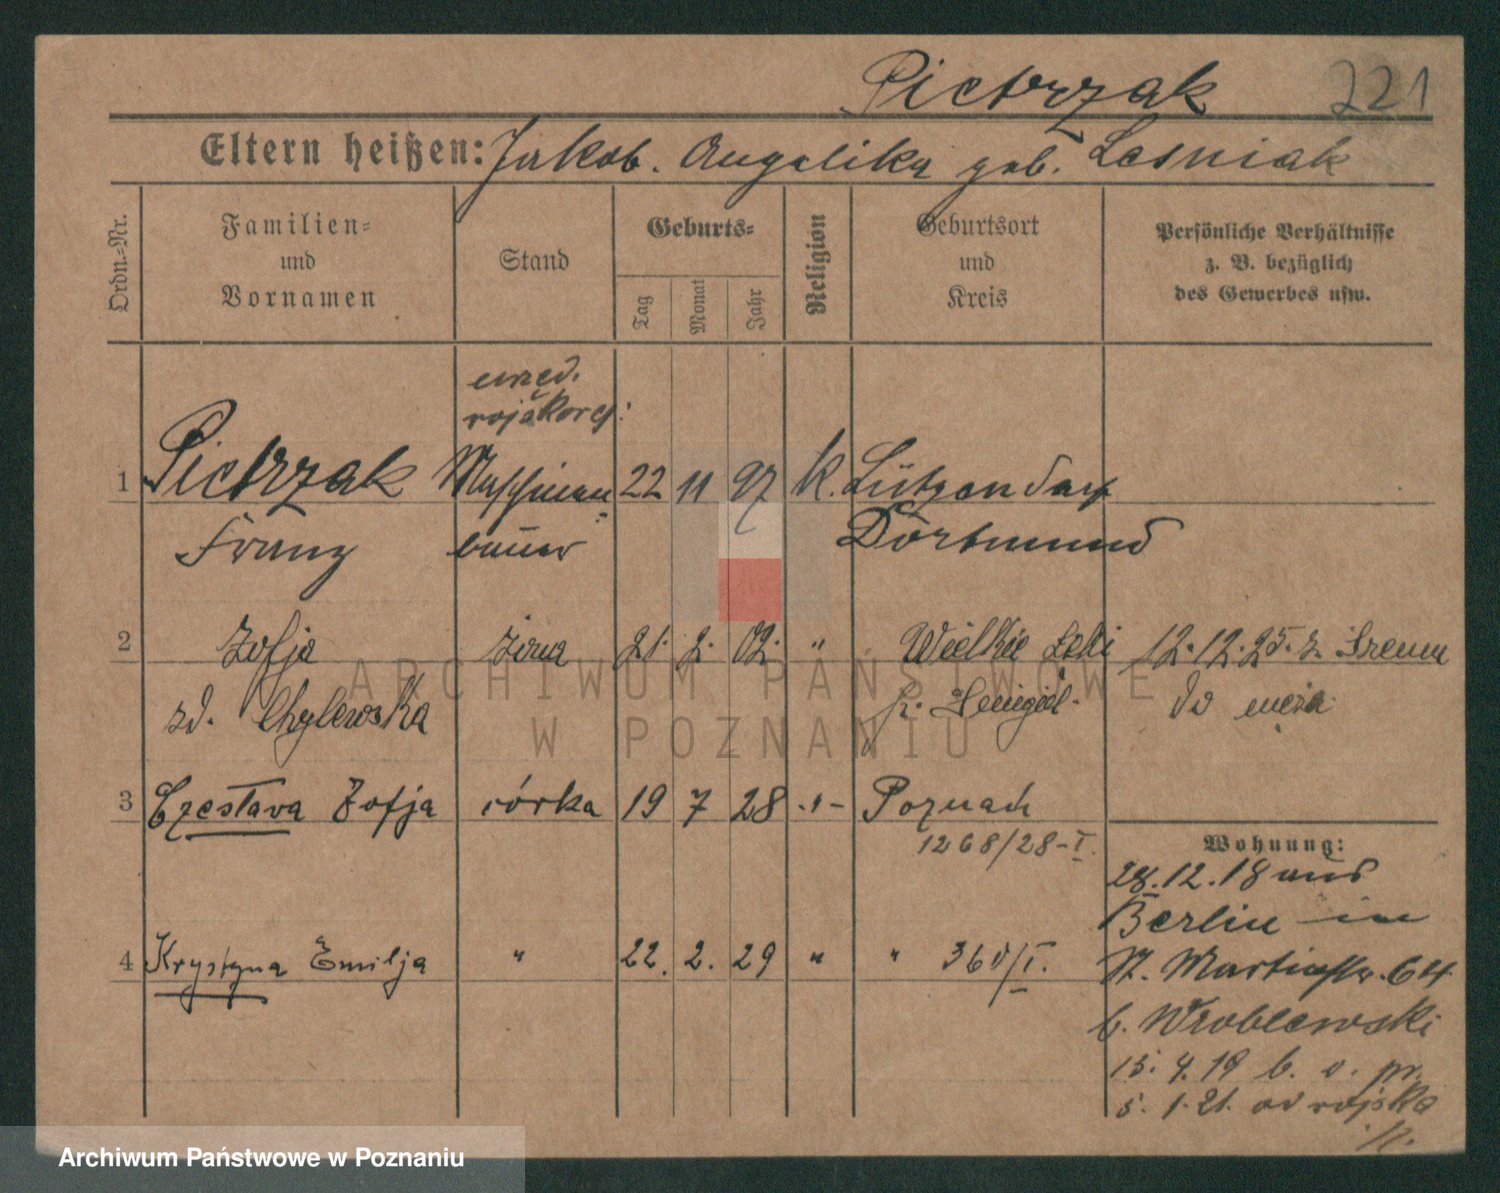 Pietrzak 221
Eltern heißen: Jakob. Angelika geb. Lesniak
Ordn.-Nr.
Familien-
und
Vornamen
Stand
Geburts-
Tag
Monat
Jahr
Religion
Geburtsort
und
Kreis
Persönliche Verhältnisse
z. B. bezüglich
des Gewerbes usw.
urzęd.
1 Pietrzak Maschinen 22 11 97 k. Lützendorf
Franz bauer Dortmund
2 Zofja żona 21. 2. 02. " Wielkie Łęki 12.12.25. z Śremu
zd. Chylewska do męża
3 Czesława Zofja córka 19 7 28 -"- Poznań
1268/28-I.
Wohnung:
28.12.18 aus
Berlin in
4 Krystyna Emilja " 22. 2. 29 " " 360/I.
St. Martinstr. 64
b. Wroblewski
15. 4. 19 b. v. pr.
5. 1. 21. od wojska
K.
ARCHIWUM PAŃSTWOWE
W POZNANIU
Archiwum Państwowe w Poznaniu